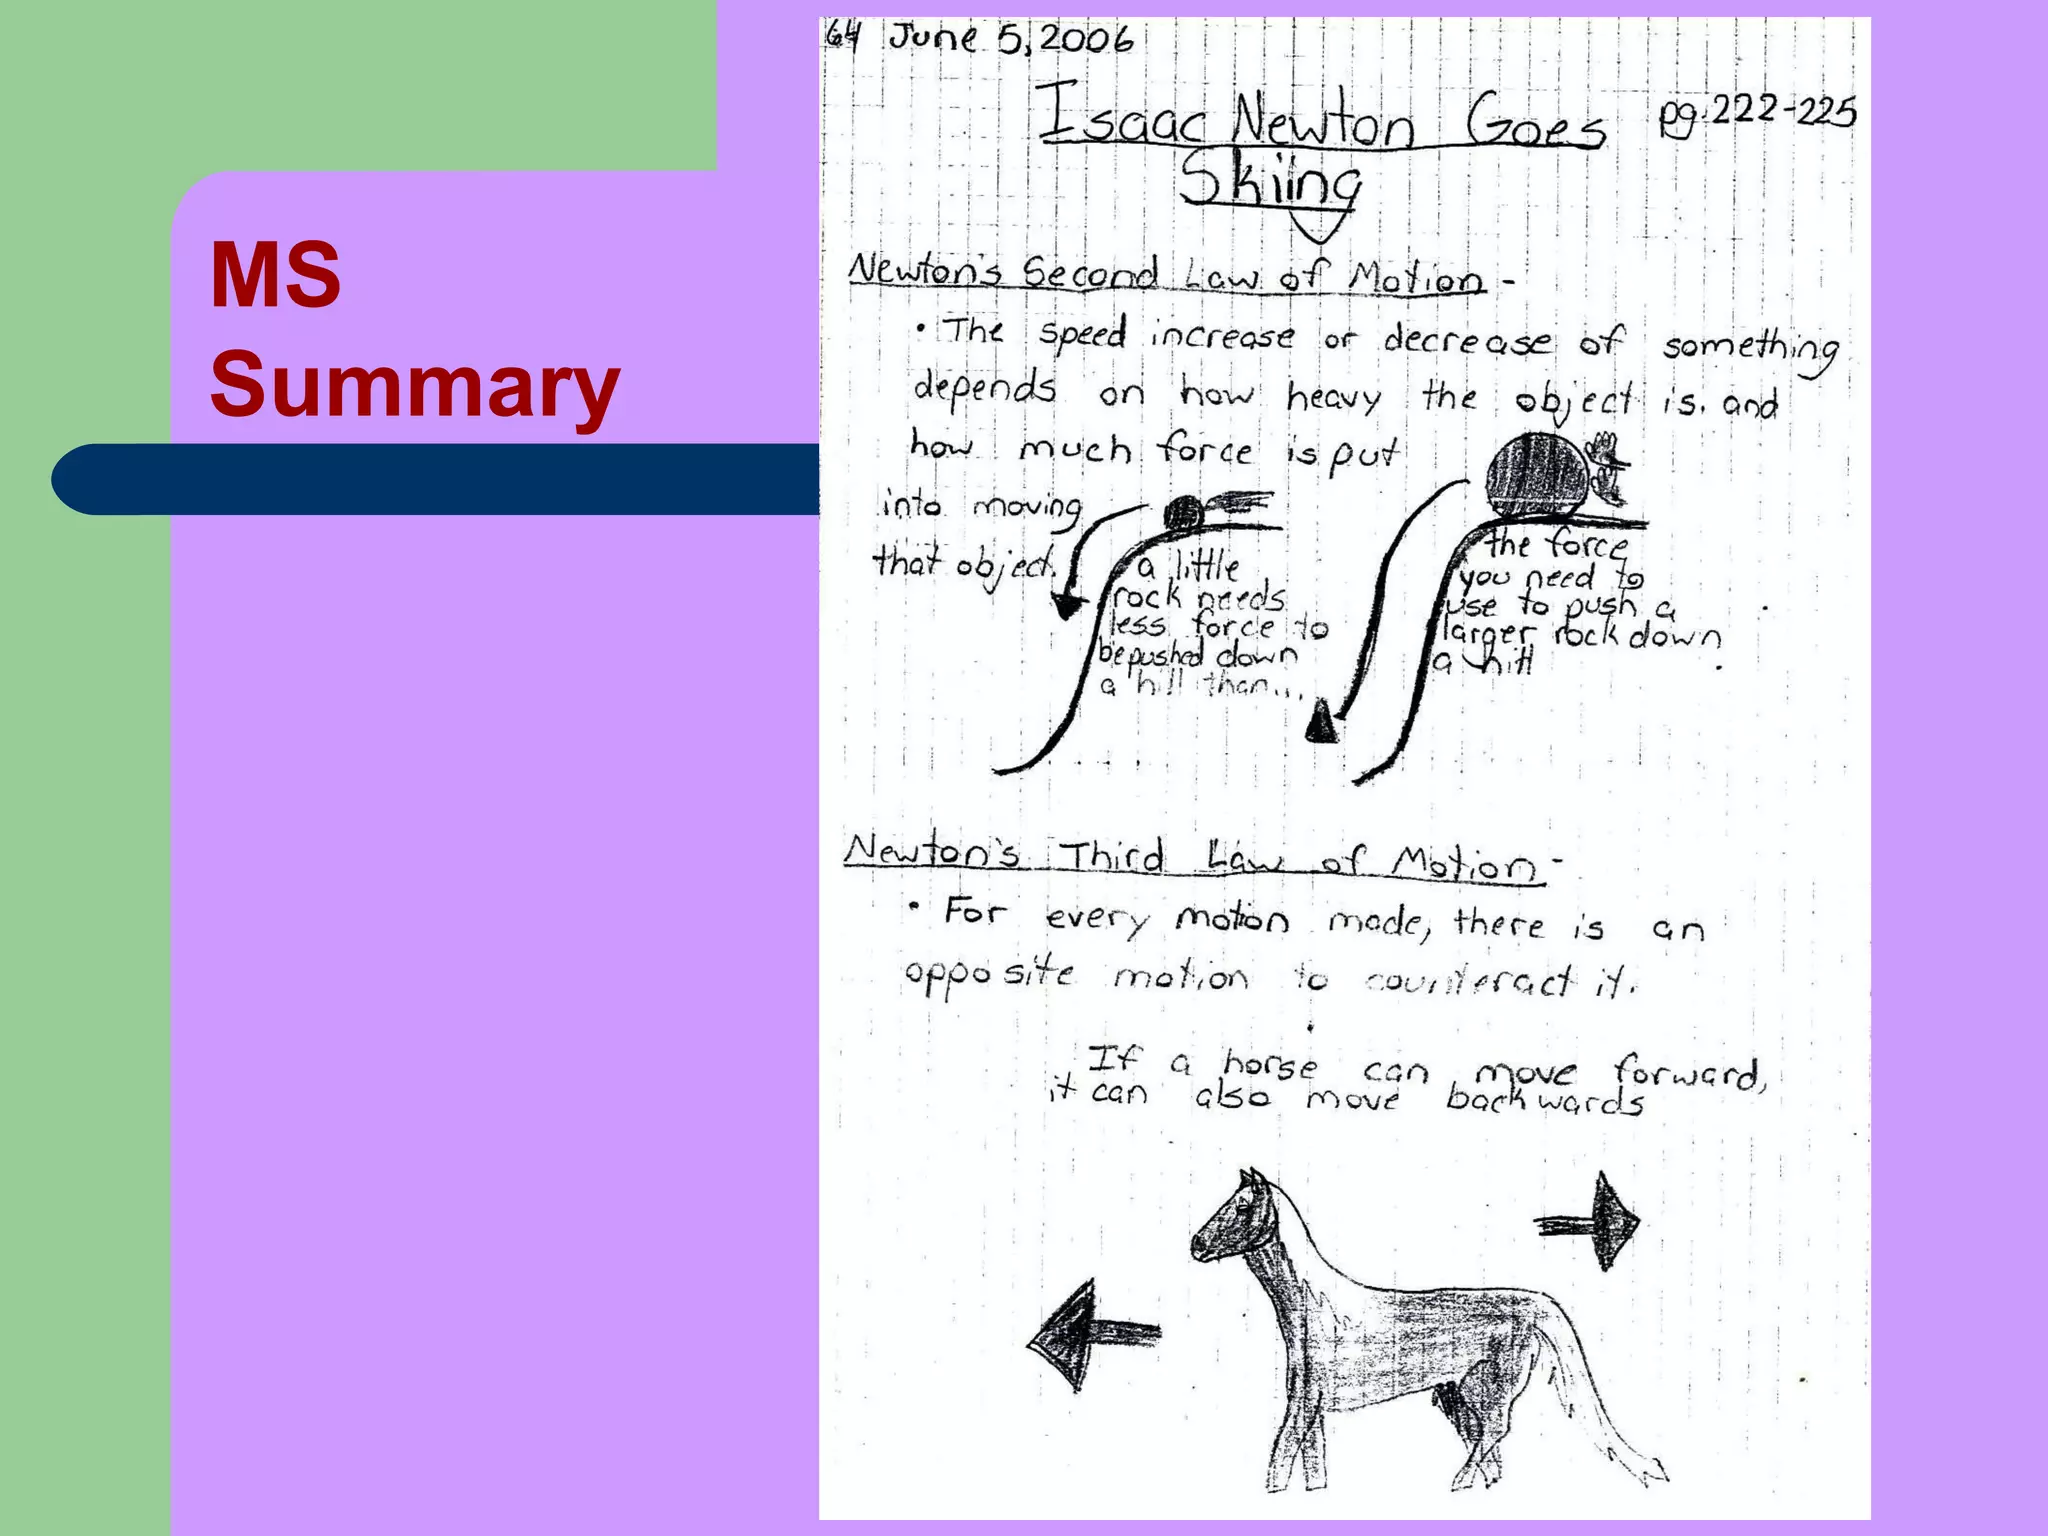 MS
Summary
64 June 5, 2006
Isaac Newton Goes pg. 222-225
Skiing
Newton's Second Law of Motion -
• The speed increase or decrease of something
depends on how heavy the object is. and
how much force is put
into moving
that object.
a little
rock needs
less force to
be pushed down
a hill than...
the force
you need to
use to push a
larger rock down
a hill
Newton's Third Law of Motion -
• For every motion made, there is an
opposite motion to counteract it.
If a horse can move forward,
it can also move backwards